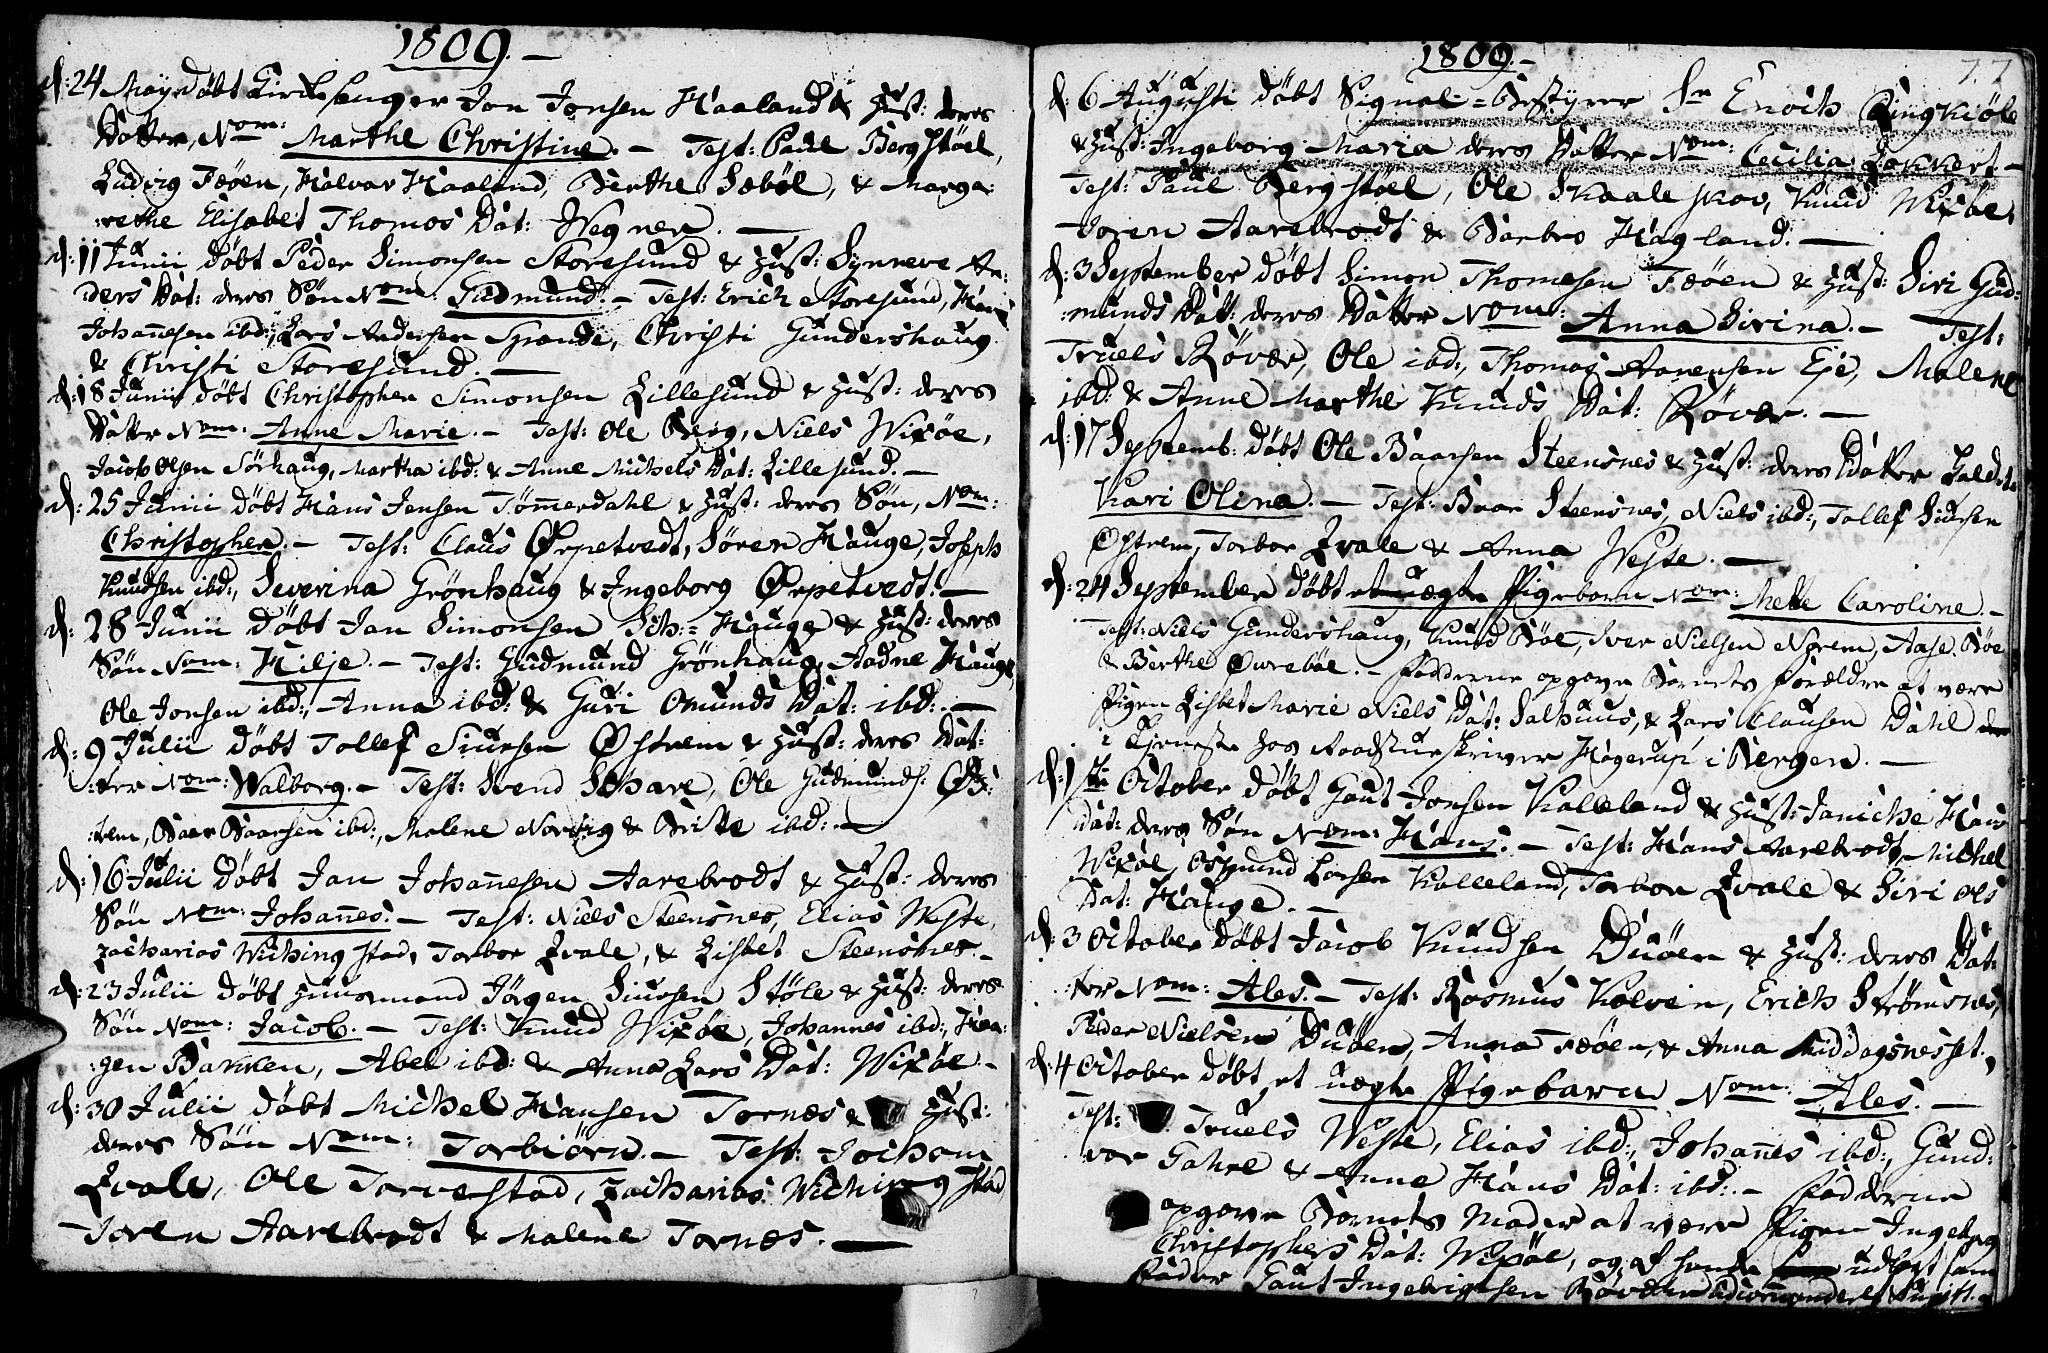 1809.-
d: 24 Maji döbt Kirkesanger Jon Jonsen Haaland & Hust: deres
Datter, Nom: Marthe Christine. - Test: Paul Bergstöel,
Ludvig Fæøen, Halvor Haaland, Berthe Sæböl, & Marga:
:rethe Elisabet Thomas Dat: Wegner. -
d: 11 Junii döbt Peder Simonsen Storesund & Hust: Synneve An:
ders Dat: deres Sön Nom: Gudmund. - Test: Erich Storesund, Hans
Johañesen ibd:, Lars Andersen Spande, Christi Gundershaug
& Christi Storesund. -
d: 18 Junii döbt Christopher Simonsen Lillesund & Hust: deres
Datter Nom: Anne Marie. - Test: Ole Berg, Niels Wixøe,
Jacob Olsen Sörhaug, Martha ibd: & Anne Michels Dat: Lillesund. -
d: 25 Junii döbt Hans Jensen Tömmerdahl & Hust: deres Sön, Nom:
Christopher. - Test: Claus Ørpetvedt, Sören Hauge, Joseph
Knudsen ibd:, Severina Grönhaug & Ingeborg Ørpetvedt. -
d: 28 Junii döbt Jan Simonsen Hauge & Hust: deres
Sön Nom: Hilje. - Test: Gudmund Grönhaug, Aadne Hauge,
Ole Jonsen ibd:, Anna ibd: & Guri Omunds Dat: ibd: -
d: 9 Julii döbt Tollef Siursen Østrem & Hust: deres Dat:
:ter Nom: Walborg. - Test: Svend Skare, Ole Gudmunds: Øst:
:trem, Baar Baarsen ibd:, Malene Norvig & Brite ibd: -
d: 16 Julii döbt Jan Johañesen Aarebrodt & Hust: deres
Sön Nom: Johañes. - Test: Niels Steensnes, Elias Weste,
Zacharias Wichingstad, Torbor Qvale, & Lisbet Steensnes. -
d: 23 Julii döbt Huusmand Jörgen Siursen Stöle & Hust: deres
Sön Nom: Jacob. - Test: Knud Wixøe, Johannes ibd:, Haa:
:gen Bakken, Abel ibd: & Anna Lars Dat: Wixøe -
d: 30 Julii döbt Michel Hansen Tornæs & Hust:
deres Sön Nom: Torbiörn. - Test: Jochom
Qvale, Ole Torvestad, Zacharias Wichingstad
Joren Aarebrodt & Malene Tornæs. -
1809.-
77
d: 6 Augusti döbt Signal-Bestyrer Sr Enoch Ringkiöb
& Hust: Ingeborg Maria deres Datter Nom: Cecilia -
Test: Paul Bergstöel, Ole Skaaleskov, Knud Wixøe,
Joren Aarebrodt & Barbro Hagland. -
d: 3 September döbt Simon Thomesen Fæøen & Hust: Siri Gud:
:munds Dat: deres Datter Nom: Anna Sirina. - Test:
Truels Rövær, Ole ibd:, Thomas Eje, Malene
ibd: & Anne Marthe Knuds Dat: Rövær. -
d: 17 Septemb: döbt Ole Baarsen Steensnes & Hust: deres Datter
Kari Olina. - Test: Baar Steensnes, Niels ibd:, Tollef Siursen
Østrem, Torbor Qvale & Anna Weste. -
d: 24 September döbt et uægte Pigebarn Nom: Mette Caroline. -
Test: Niels Gundershaug, Knud Böe, Iver Nielsen Norem, Aase Böe
& Berthe Øvreböe. - Fadderne opgave Barnets Forældre at være
Pigen Lisbet Marie Niels Dat: Salhuus, & Lars Clausen Dahl
i Tjeneste hos Raadstueskriver Hagerup i Bergen. -
d: 1ste October döbt Gaut Jonsen Kalleland & Hust: Janiche Hans
Dat: deres Sön Nom: Hans. - Test: Hans Aarebrodt, Michel
Wixøe, Osmund Larsen Kalleland, Torbor Qvale & Siri Ols
Dat: Hauge. -
d: 3 October döbt Jacob Knudsen Duöen & Hust: deres Dat:
:ter Nom: Ales. - Test: Rasmus Kolvein, Erich Strömsnes,
Peder Nielsen Duöen, Anna Fæøen, & Anna Middagsneset.
d: 4 October döbt et uægte Pigebarn Nom: Ales. -
Test: Truels Weste, Elias ibd:, Johañes ibd:, Gund:
:vor Gahre & Anne Hans Dat: ibd: - Fadderne
opgave Barnets Moder at være Pigen Ingeborg
Christophers Dat: Wixøe, og af hende udlagt som
Fader Gaut Ingebrigtsen Rövær